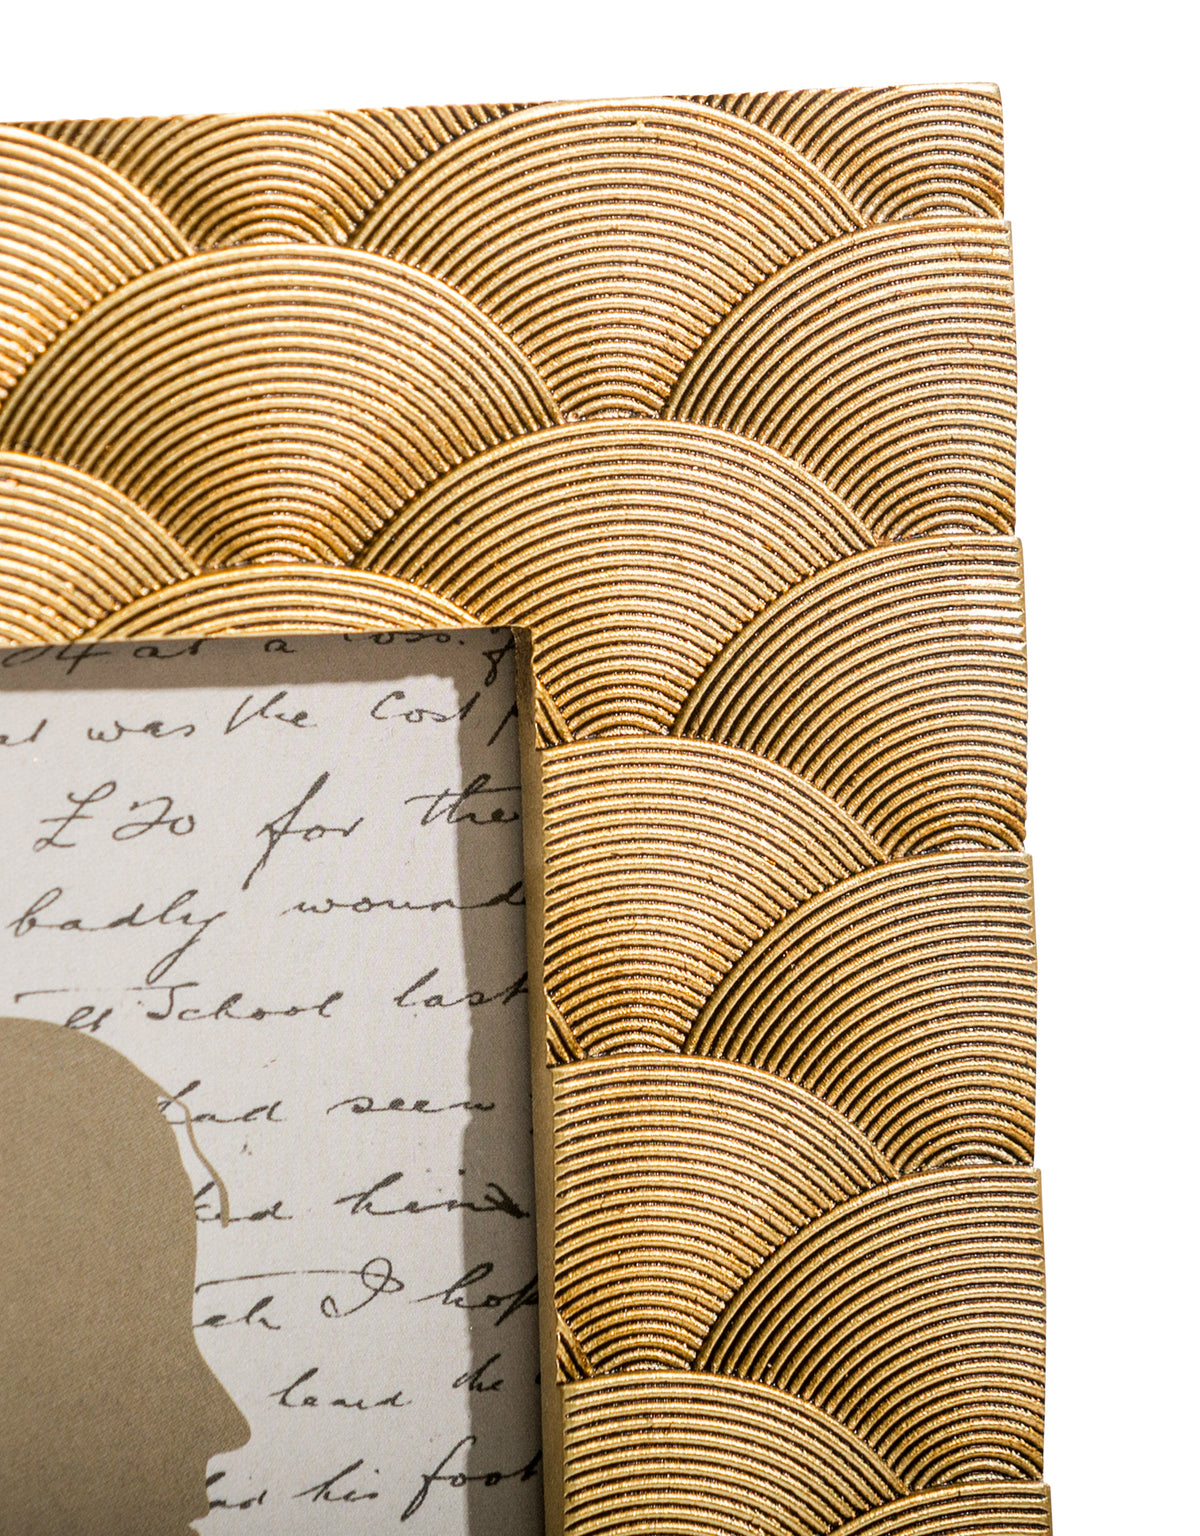 at a loss.
was the Cost
£20 for the
badly wound
School last
had seen
ked him
I hop
heard the
his foot